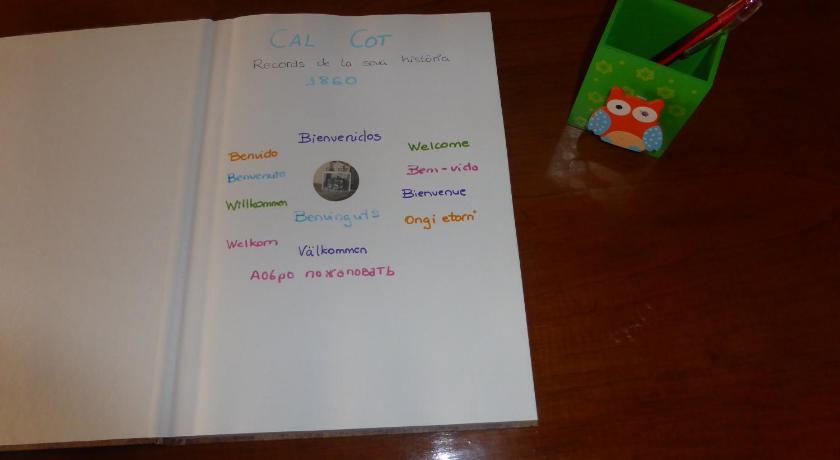 CAL COT
Records de la seva història
1860
Bienvenidos
Benvido
Welcome
Benvenuto
Bem-vido
Willkommen
Bienvenue
Benvinguts
Ongi etorri
Welkom
Välkommen
Добро пожаловать